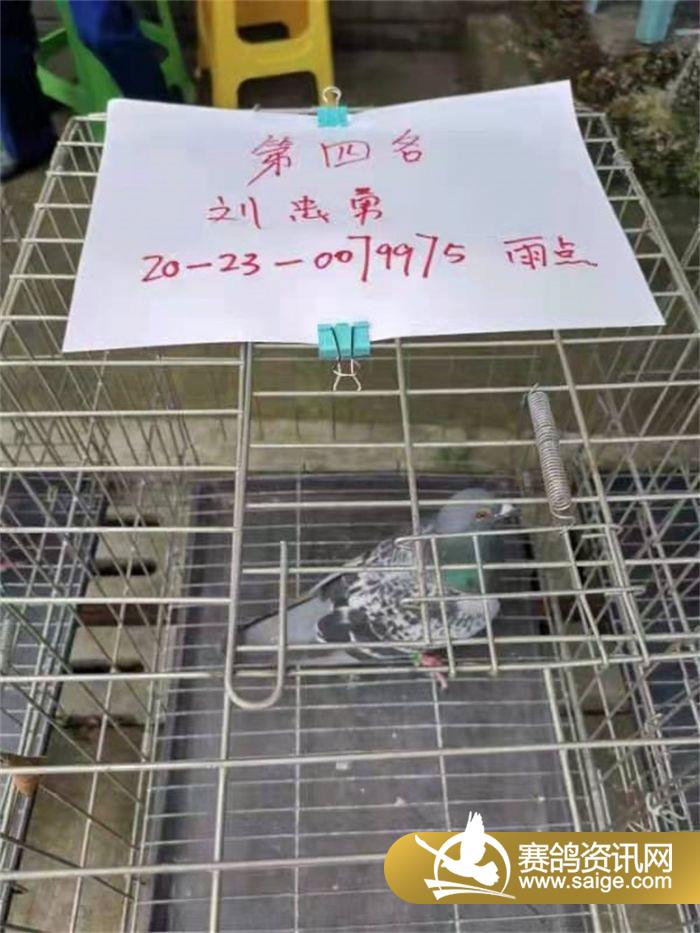 第四名
刘忠勇
20-23-0079975 雨点
赛鸽资讯网
www.saige.com